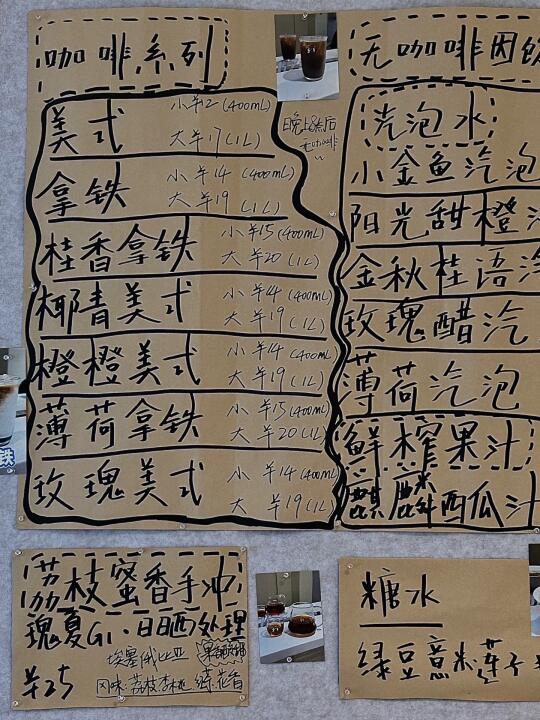 咖啡系列
美式
小¥12(400mL)
大¥17(1L)
拿铁
小¥14(400mL)
大¥19(1L)
桂香拿铁
小¥15(400mL)
大¥20(1L)
椰青美式
小¥14(400mL)
大¥19(1L)
橙橙美式
小¥14(400mL)
大¥19(1L)
薄荷拿铁
小¥15(400mL)
大¥20(1L)
玫瑰美式
小¥14(400mL)
大¥19(1L)
晚上8点后
无咖啡
无咖啡因饮
汽泡水
小金鱼汽泡
阳光甜橙汽
金秋桂语汽
玫瑰醋汽
薄荷汽泡
鲜榨果汁
麒麟西瓜汁
铁
荔枝蜜香手冲
瑰夏G1·日晒处理
埃塞俄比亚
¥25
风味:荔枝.李桃.绿茶.花香
糖水
绿豆意米莲子